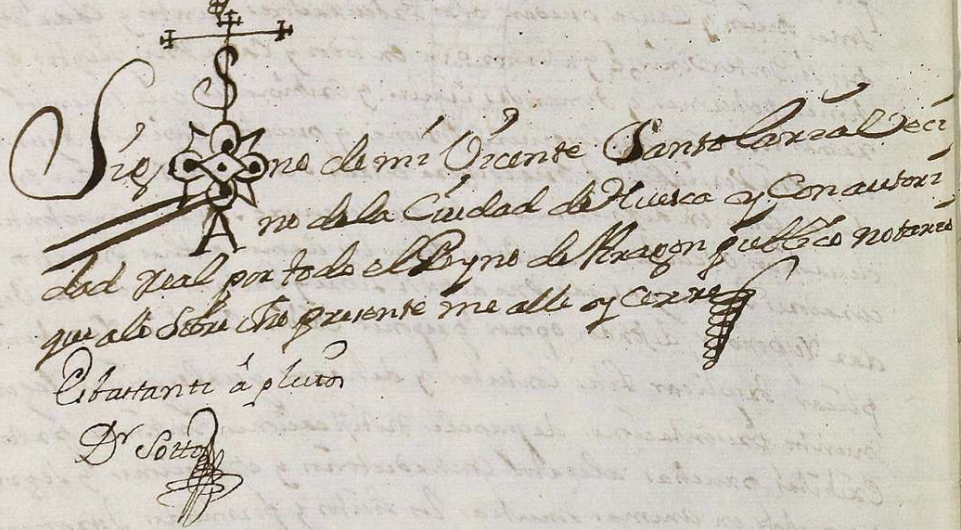 Sig no de mi Vicente Santolaria Veci
no de la Ciudad de Huesca y Con autori
dad Real por todo el Reyno de Aragon publico notario
que alo Sobre dho presente me alle y cerre
Es bastante á pleitos
Dr Sotto